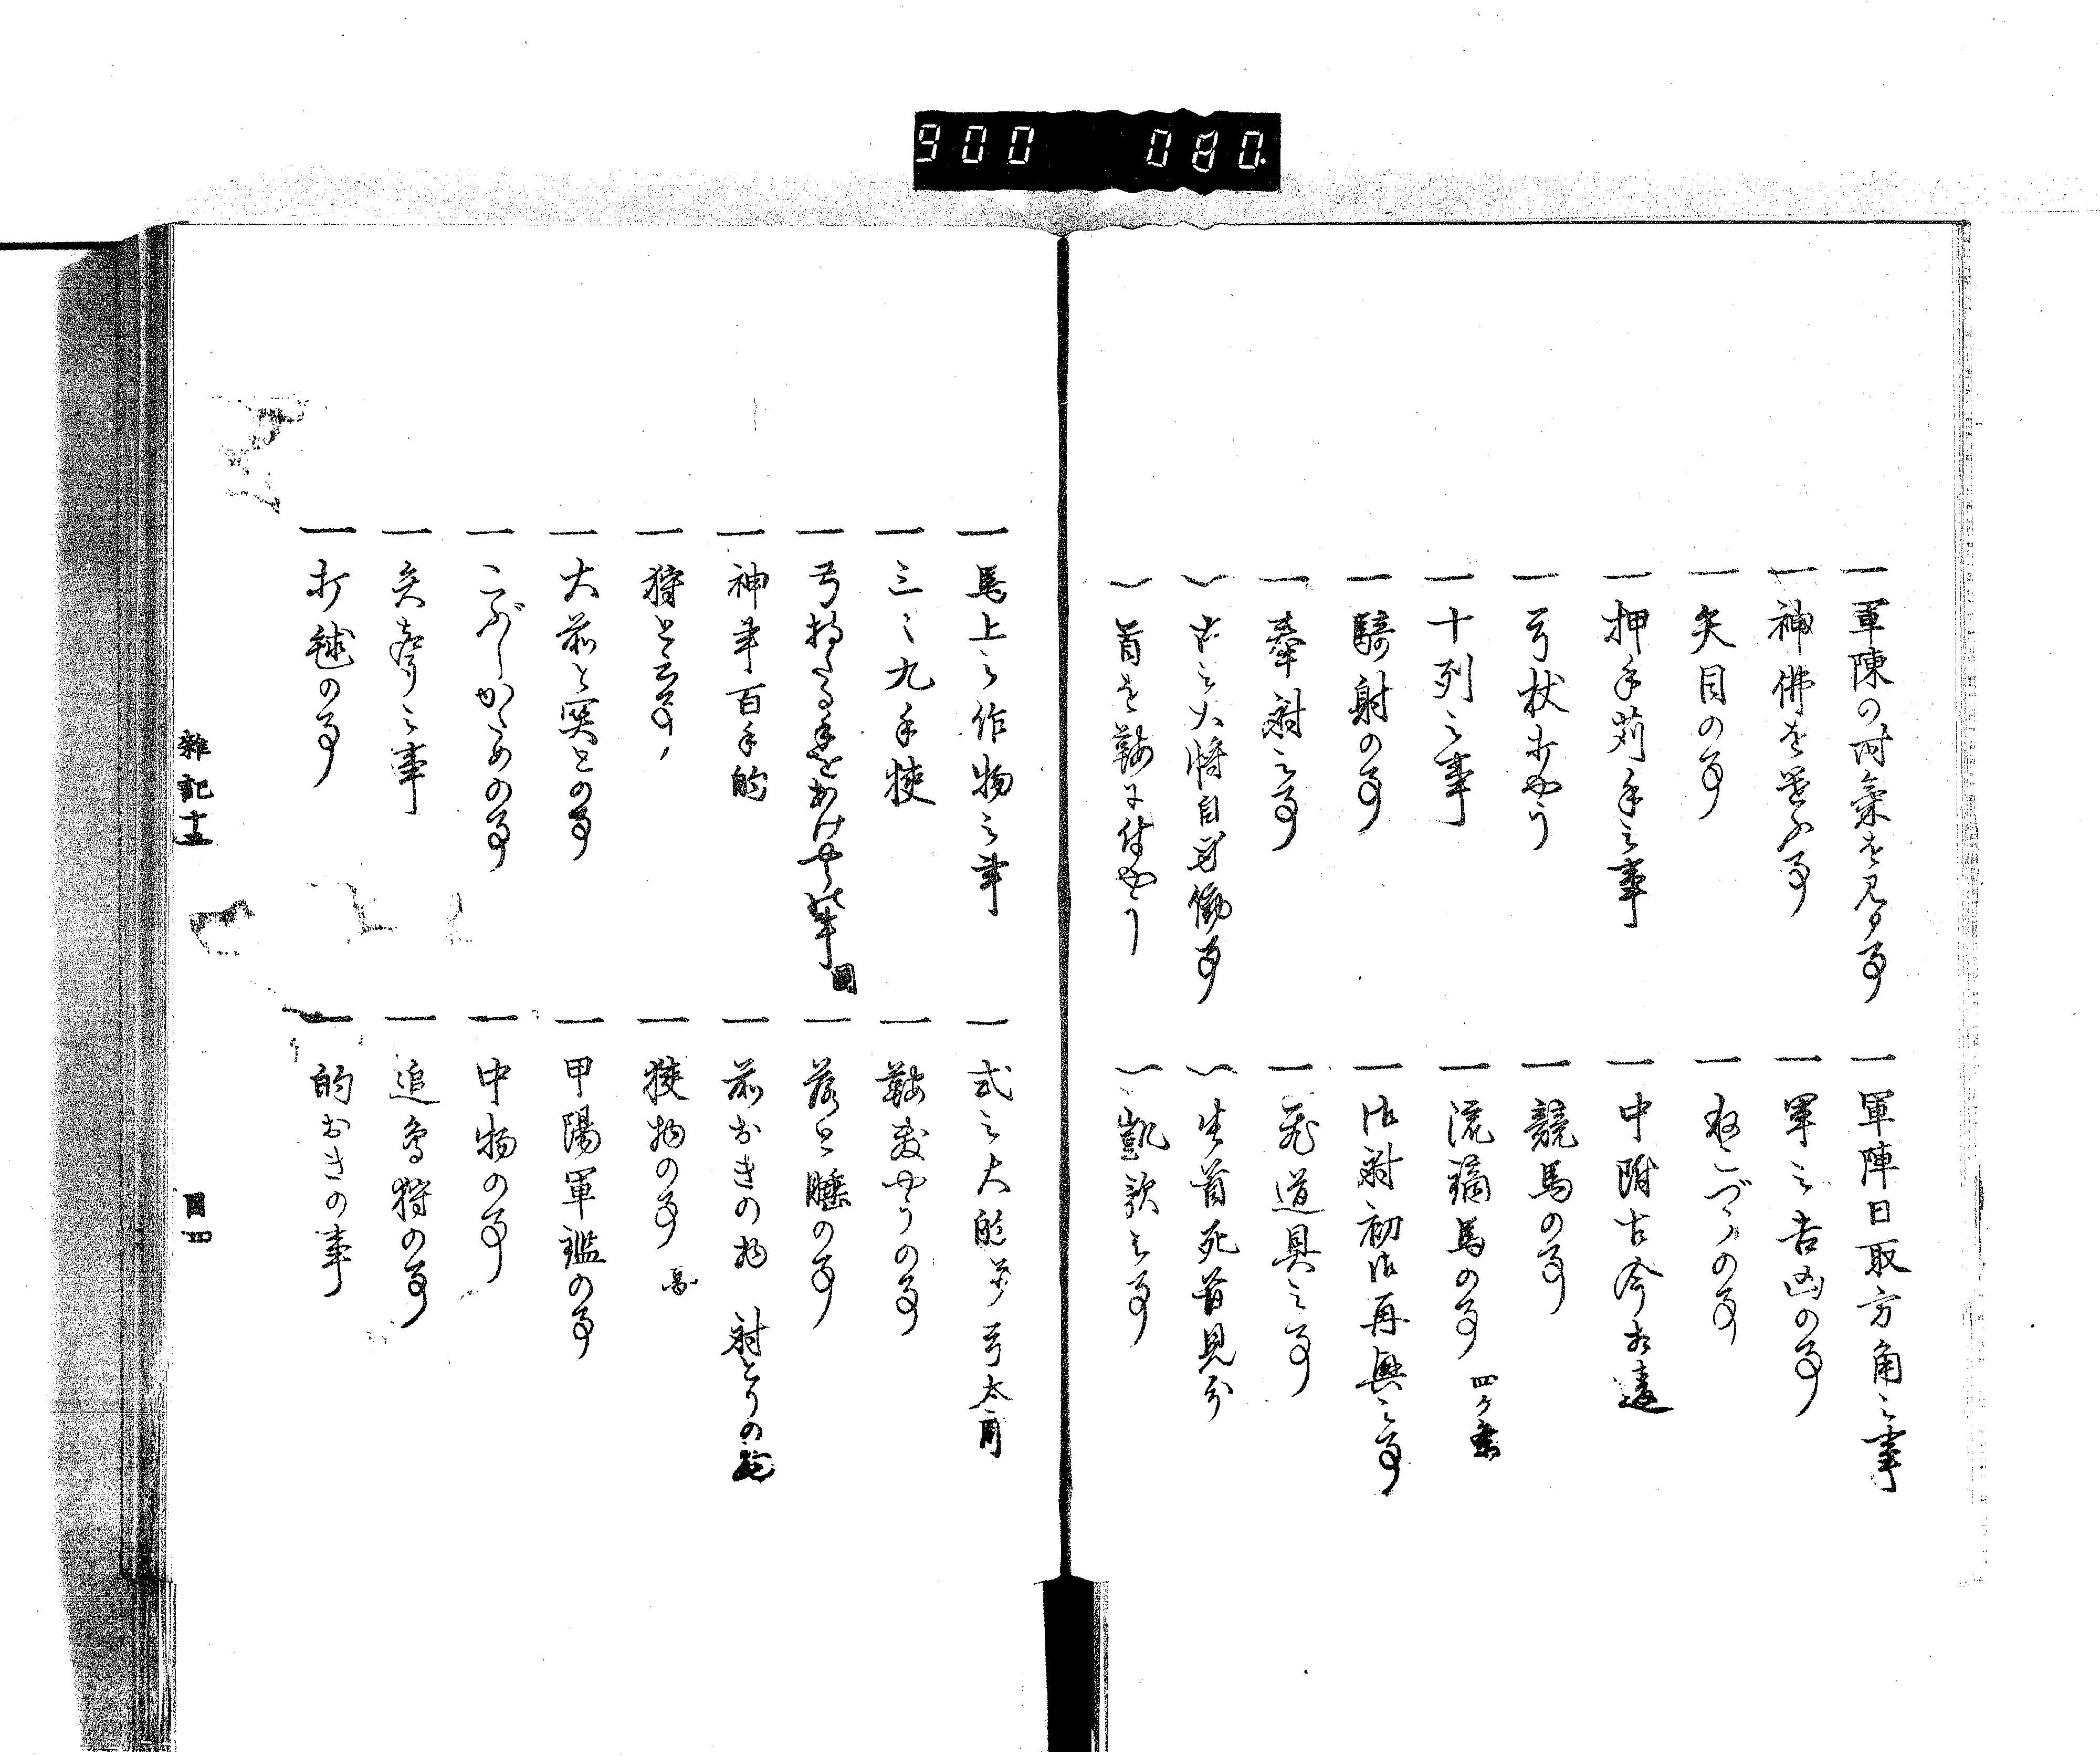 900 080.
一 軍陳の時氣を見る事
一 軍陣日取方角之事
一 神佛を墨ふ事
一 軍之吉凶の事
一 矢目の事
一 的こづゝの事
一 押手苅手之事
一 中附古今相違
一 弓杖打やう
一 競馬の事
一 十列之事
一 流鏑馬の事 四ケ条
一 騎射の事
一 御射初御再興之事
一 奉射之事
一 飛道具之事
一 古之大将自身働事
一 生首死首見分
一 首を鞍に付やう
一 凱歌之事
一 馬上之作物之事
一 式之大的并弓太郎
一 三々九手挟
一 鞍敷やうの事
一 弓持たる手をあけ
一 落と睡の事
一 神事百手的
一 前おきの物 射とりの
一 狩と云事
一 挟物の事
一 大前と突との事
一 甲陽軍鑑の事
一 こぶしかための事
一 中物の事
一 矢牽之事
一 追鳥狩の事
一 打毬の事
一 的おきの事
雜記十五
目一